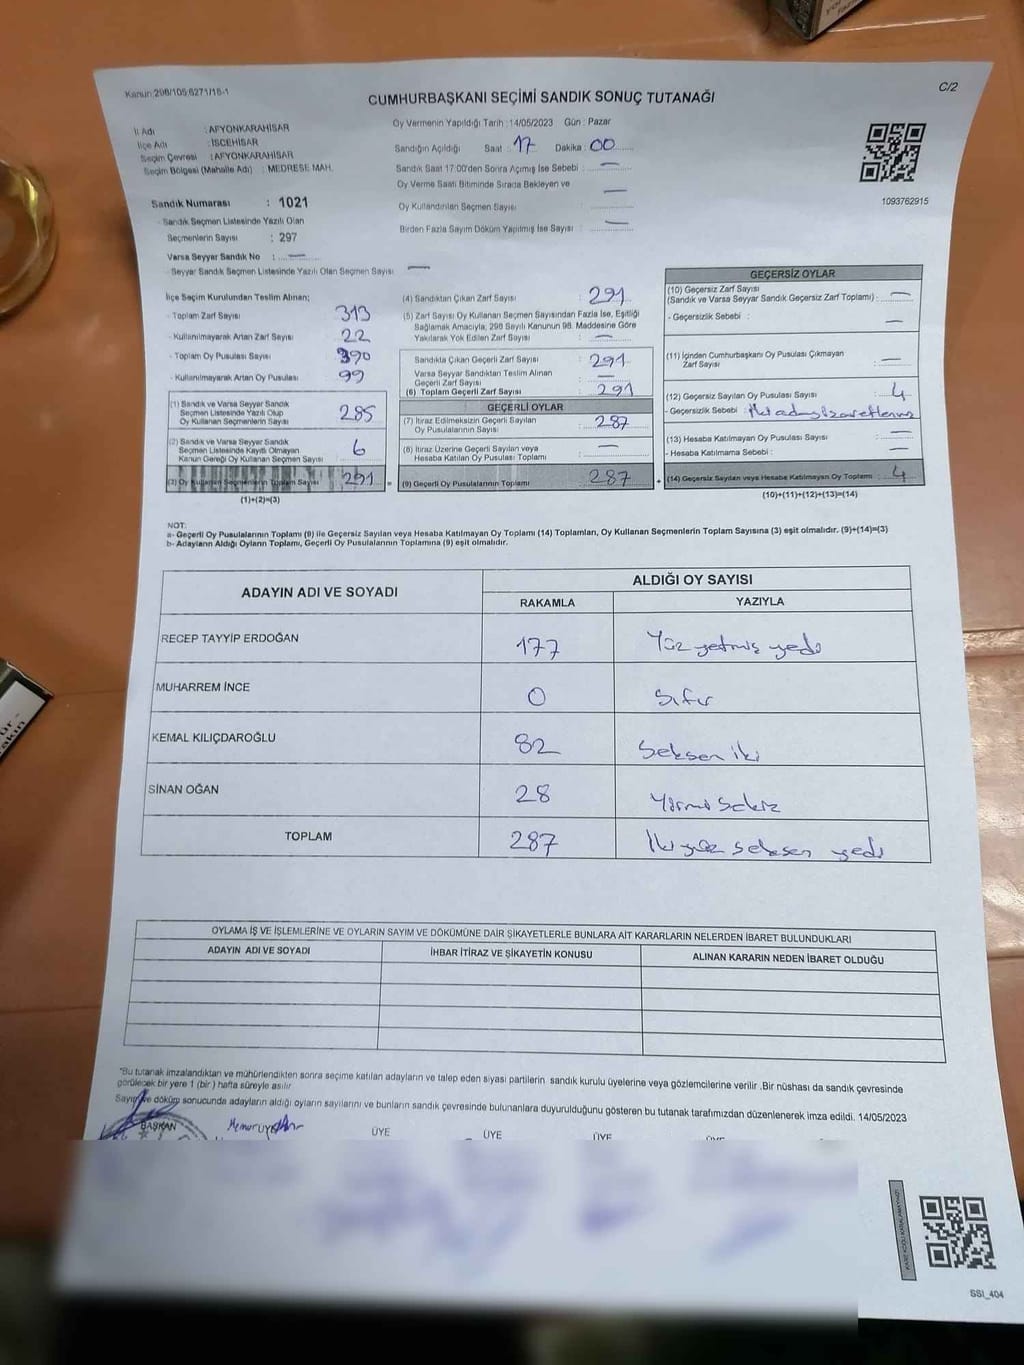 Kanun:298/105;6271/16-1
C/2
CUMHURBAŞKANI SEÇİMİ SANDIK SONUÇ TUTANAĞI
İl Adı : AFYONKARAHİSAR
İlçe Adı : İSCEHİSAR
Seçim Çevresi : AFYONKARAHİSAR
Seçim Bölgesi (Mahalle Adı) : MEDRESE MAH.
Sandık Numarası : 1021
Sandık Seçmen Listesinde Yazılı Olan
Seçmenlerin Sayısı : 297
Varsa Seyyar Sandık No : —
Seyyar Sandık Seçmen Listesinde Yazılı Olan Seçmen Sayısı —
Oy Vermenin Yapıldığı Tarih :14/05/2023 Gün : Pazar
Sandığın Açıldığı Saat : 17 Dakika : 00
Sandık Saat 17:00'den Sonra Açımış İse Sebebi : —
Oy Verme Saati Bitiminde Sırada Bekleyen ve —
Oy Kullandırılan Seçmen Sayısı :
Birden Fazla Sayım Döküm Yapılmış İse Sayısı : —
1093762915
İlçe Seçim Kurulundan Teslim Alınan;
- Toplam Zarf Sayısı : 313
- Kullanılmayarak Artan Zarf Sayısı : 22
- Toplam Oy Pusulası Sayısı : 390
- Kullanılmayarak Artan Oy Pusulası : 99
(1) Sandık ve Varsa Seyyar Sandık
Seçmen Listesinde Yazılı Olup
Oy Kullanan Seçmenlerin Sayısı : 285
(2) Sandık ve Varsa Seyyar Sandık
Seçmen Listesinde Kayıtlı Olmayan
Kanun Gereği Oy Kullanan Seçmen Sayısı : 6
(3) Oy Kullanan Seçmenlerin Toplam Sayısı : 291
(1)+(2)=(3)
(4) Sandıktan Çıkan Zarf Sayısı : 291
(5) Zarf Sayısı Oy Kullanan Seçmen Sayısından Fazla İse, Eşitliği
Sağlamak Amacıyla; 298 Sayılı Kanunun 98. Maddesine Göre
Yakılarak Yok Edilen Zarf Sayısı : —
Sandıkta Çıkan Geçerli Zarf Sayısı : 291
Varsa Seyyar Sandıktan Teslim Alınan
Geçerli Zarf Sayısı : —
(6) Toplam Geçerli Zarf Sayısı : 291
GEÇERLİ OYLAR
(7) İtiraz Edilmeksizin Geçerli Sayılan
Oy Pusulalarının Sayısı : 287
(8) İtiraz Üzerine Geçerli Sayılan veya
Hesaba Katılan Oy Pusulası Toplamı : —
(9) Geçerli Oy Pusulalarının Toplamı : 287
GEÇERSİZ OYLAR
(10) Geçersiz Zarf Sayısı
(Sandık ve Varsa Seyyar Sandık Geçersiz Zarf Toplamı) : —
- Geçersizlik Sebebi : —
(11) İçinden Cumhurbaşkanı Oy Pusulası Çıkmayan
Zarf Sayısı : —
(12) Geçersiz Sayılan Oy Pusulası Sayısı : 4
- Geçersizlik Sebebi :
(13) Hesaba Katılmayan Oy Pusulası Sayısı : —
- Hesaba Katılmama Sebebi : —
(14) Geçersiz Sayılan veya Hesaba Katılmayan Oy Toplamı : 4
(10)+(11)+(12)+(13)=(14)
NOT:
a- Geçerli Oy Pusulalarının Toplamı (9) ile Geçersiz Sayılan veya Hesaba Katılmayan Oy Toplamı (14) Toplamları, Oy Kullanan Seçmenlerin Toplam Sayısına (3) eşit olmalıdır. (9)+(14)=(3)
b- Adayların Aldığı Oyların Toplamı, Geçerli Oy Pusulalarının Toplamına (9) eşit olmalıdır.
ADAYIN ADI VE SOYADI
ALDIĞI OY SAYISI
RAKAMLA YAZIYLA
RECEP TAYYİP ERDOĞAN 177 Yüz yetmiş yedi
MUHARREM İNCE 0 Sıfır
KEMAL KILIÇDAROĞLU 82 Seksen iki
SİNAN OĞAN 28 Yirmi Sekiz
TOPLAM 287 İki yüz seksen yedi
OYLAMA İŞ VE İŞLEMLERİNE VE OYLARIN SAYIM VE DÖKÜMÜNE DAİR ŞİKAYETLERLE BUNLARA AİT KARARLARIN NELERDEN İBARET BULUNDUKLARI
ADAYIN ADI VE SOYADI İHBAR İTİRAZ VE ŞİKAYETİN KONUSU ALINAN KARARIN NEDEN İBARET OLDUĞU
"Bu tutanak imzalandıktan ve mühürlendikten sonra seçime katılan adayların ve talep eden siyasi partilerin sandık kurulu üyelerine veya gözlemcilerine verilir .Bir nüshası da sandık çevresinde
görülecek bir yere 1 (bir ) hafta süreyle asılır
Sayım ve döküm sonucunda adayların aldığı oyların sayılarını ve bunların sandık çevresinde bulunanlara duyurulduğunu gösteren bu tutanak tarafımızdan düzenlenerek imza edildi. 14/05/2023
BAŞKAN ÜYE ÜYE ÜYE ÜYE
SSI_404